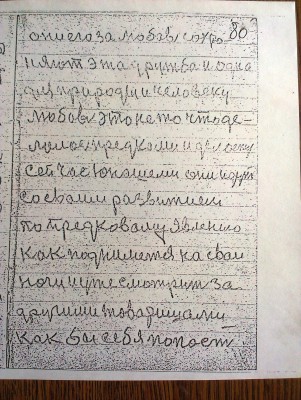 80
они его за любовь сохро
няют эта дружба и одна
для природы и человеку
любовь это не то что де-
лалось предками и делается
сейчас юношеми они идут
со своим развитием
по предковому явлению
как поднимется на свои
ноги и уже смотрит за
другими товарищами
как бы себя попост